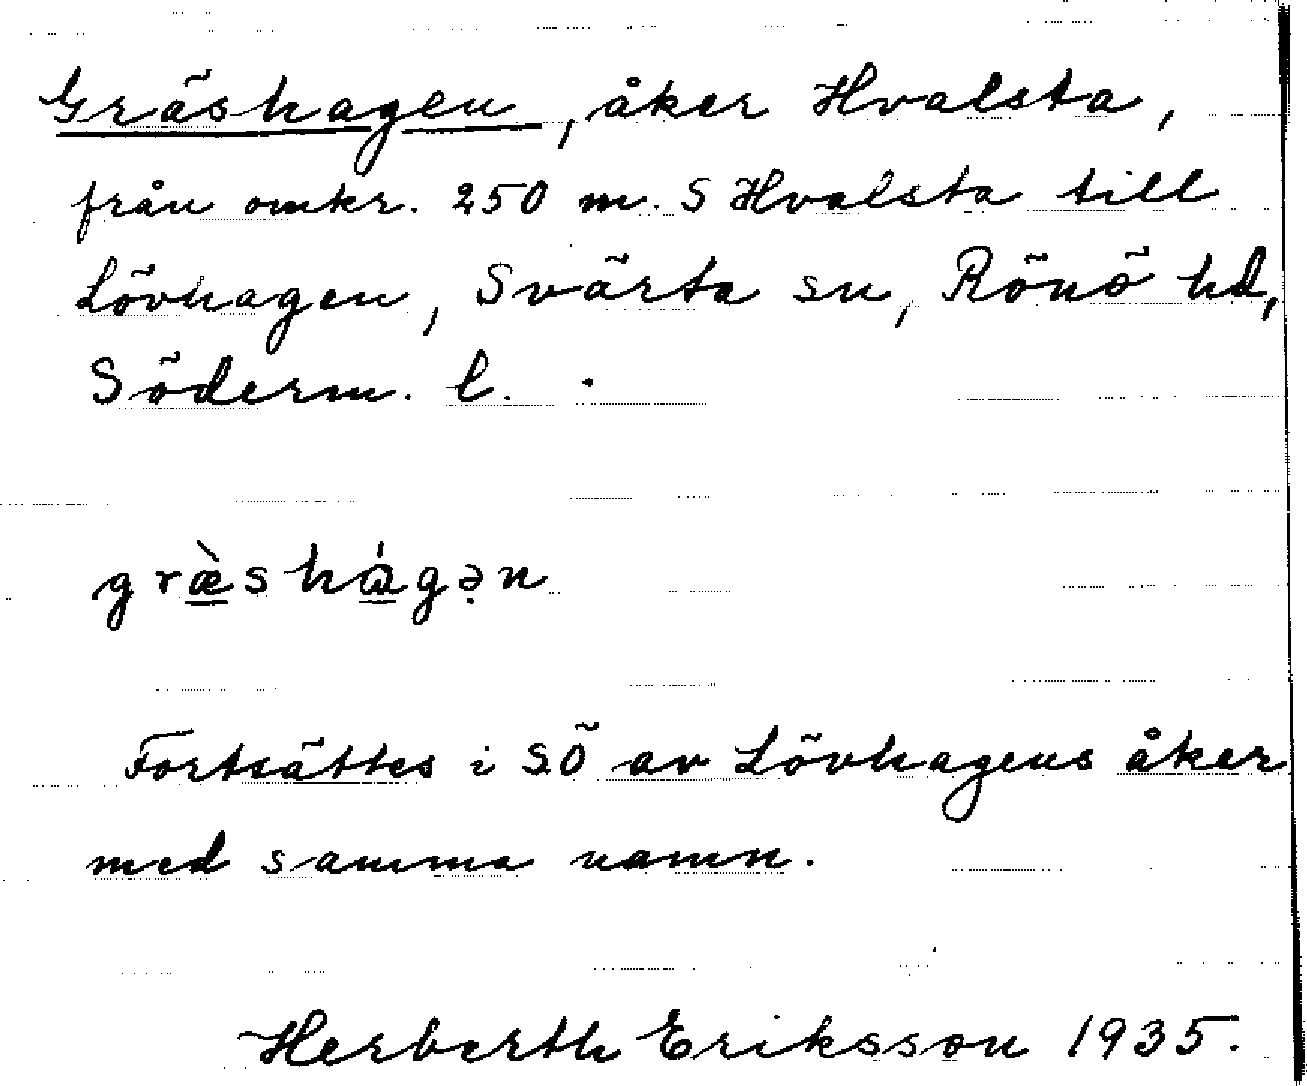 Gräshagen, åker Hvalsta,
från omkr. 250 m. S Hvalsta till
Lövhagen, Svärta sn, Rönö hd,
Söderm. l.
græ̀shágə̣n
Fortsättes i SÖ av Lövhagens åker
med samma namn.
Herberth Eriksson 1935.